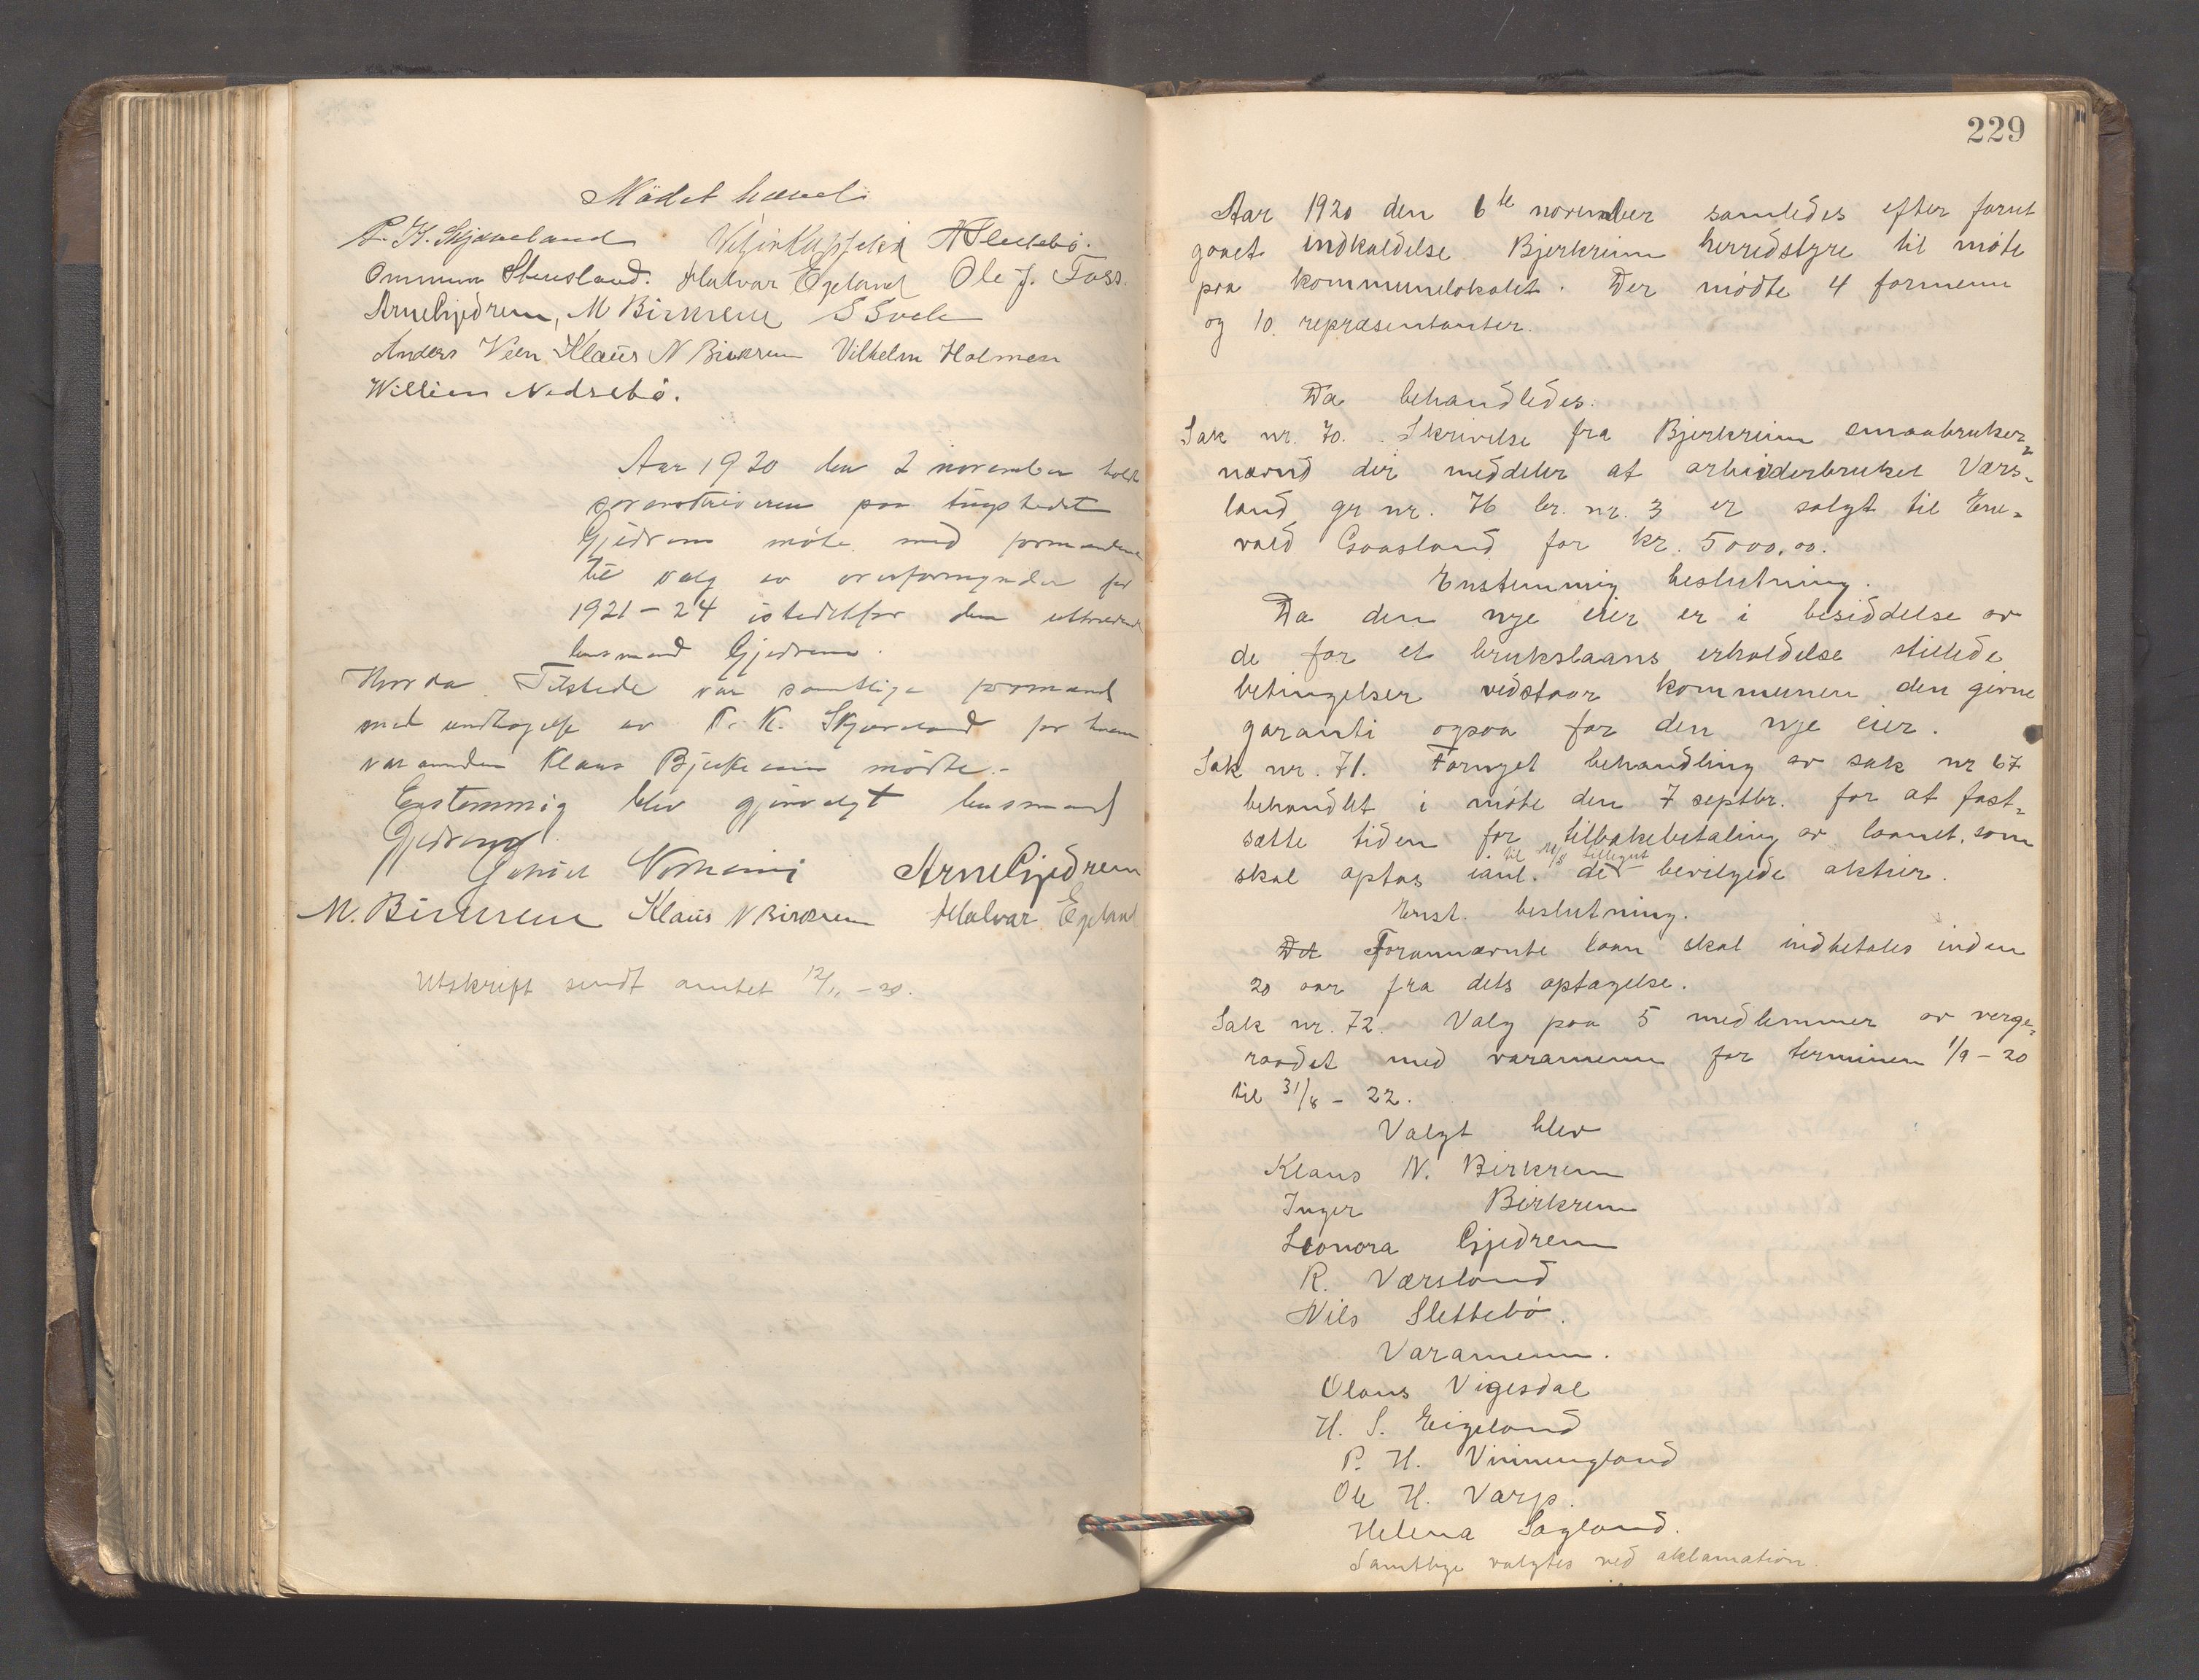 Mödet hævet
Slettebö.
Ommun Stensland. Halvar Egeland Ole J. Foss.
Arne Gjedrem, M Birkrem S Svela
Anders Veen Klaus N Birkrem Vilhelm Holmen
Willien Nedrebö.
Aar 1920 den 2 november holdt
sorenskriveren paa tingstedet
Gjedrem möte med formændene
til valg av overformynder for
1921-24 istedetfor den uttrædende
lensmand Gjedrem.
Hvorda Tilstede var samtlige formænd
med undtagelse av T. K. Skjæveland for hvem
varamanden Klaus Bjerkreim mödte.-
Enstemmig blev gjenvalgt lensmand
Gjedrem
Arne Gjedrem
M. Birkrem Klaus N Birkrem Halvar Egeland
Utskrift sendt amtet 12/11 -20.
229
Aar 1920 den 6te november samledes efter forut
gaaet indkaldelse Bjerkreim herredstyre til möte
paa kommunelokalet. Der mödte 4 formenn
og 10. repræsentanter.
Da behandledes.
Sak nr. 70. Skrivelse fra Bjerkreim smaabruker-
nævnd der meddeler at arbeiderbruketVærs-
land gr nr. 76 br. nr. 3 er solgt til Ene-
vald Gaasland for kr. 5000,00.
Enstemmig beslutning.
Da den nye eier er i besiddelse av
de for et brukslaans erholdelse stillede
betingelser vedstaar kommunen den givne
garanti ogsaa for den nye eier.
Sak nr. 71. Fornyet behandling av sak nr 67
behandlet i möte den 7 septbr. for at fast-
sætte tiden for tilbakebetaling av laanet, som
til tillegnet
skal optas ianl. de bevilgede aktier.
Enst. beslutning.
Det Forannævnte laan skal indbetales inden
20 aar fra dets optagelse.
Sak nr. 72. Valg paa 5 medlemmer av verge-
raadet med varamenn for terminen 1/9 - 20
til 31/8 - 22.
Valgt blev
Klaus N. Birkrem
Inger Birkrem
Leonora Gjedrem
R. Værsland
Nils Slettebö.
Varamenn.
Olaus Vigesdal
H. S. Eigeland
P. H. Vinningland
Ole H. Varp.
Helena Sagland.
Samtlige valgtes ved aklamation.